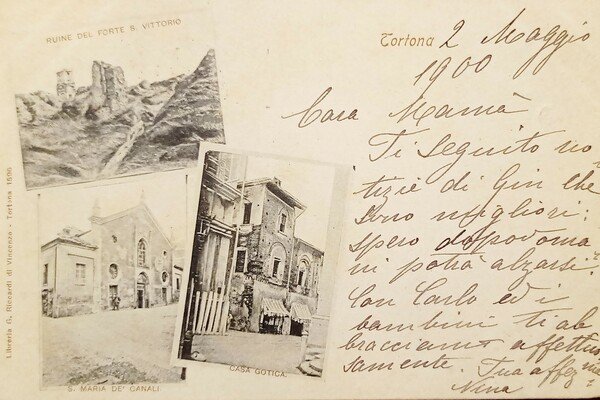 RUINE DEL FORTE S. VITTORIO
Tortona 2 Maggio
1900
Cara Mamà
Ti seguito no
tizie di Gin che
sono migliori;
spero dopodoma
ni potrà alzarsi.
Con Carlo ed i
bambini ti ab
bracciamo affettuo
samente. Tua affez.ma
Nina
CASA GOTICA.
S. MARIA DE' CANALI.
Libreria G. Riccardi di Vincenzo - Tortona 1596